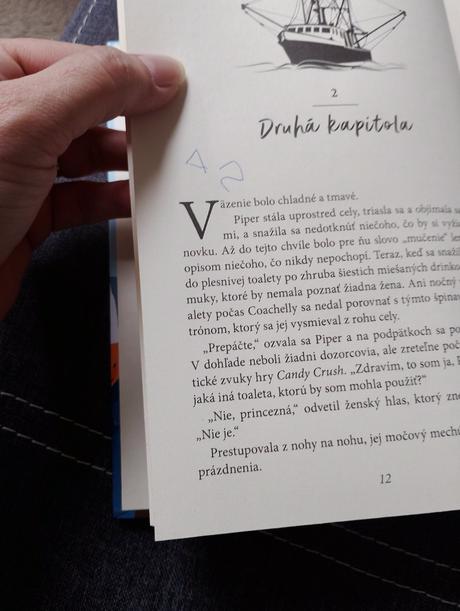 2
Druhá kapitola
Väzenie bolo chladné a tmavé.
Piper stála uprostred cely, triasla sa a objímala
mi, a snažila sa nedotknúť niečoho, čo by si
novku. Až do tejto chvíle bolo pre ňu slovo „mučenie“
opisom niečoho, čo nikdy nepochopí. Teraz, keď sa
do plesnivej toalety po zhruba šiestich miešaných
muky, ktoré by nemala poznať žiadna žena. Ani nočný
alety počas Coachelly sa nedal porovnať s týmto
trónom, ktorý sa jej vysmieval z rohu cely.
„Prepáčte,“ ozvala sa Piper a na podpätkoch sa
V dohľade neboli žiadni dozorcovia, ale zreteľne
tické zvuky hry Candy Crush. „Zdravím, to som ja,
jaká iná toaleta, ktorú by som mohla použiť?“
„Nie, princezná,“ odvetil ženský hlas, ktorý
„Nie je.“
Prestupovala z nohy na nohu, jej močový
prázdnenia.
12